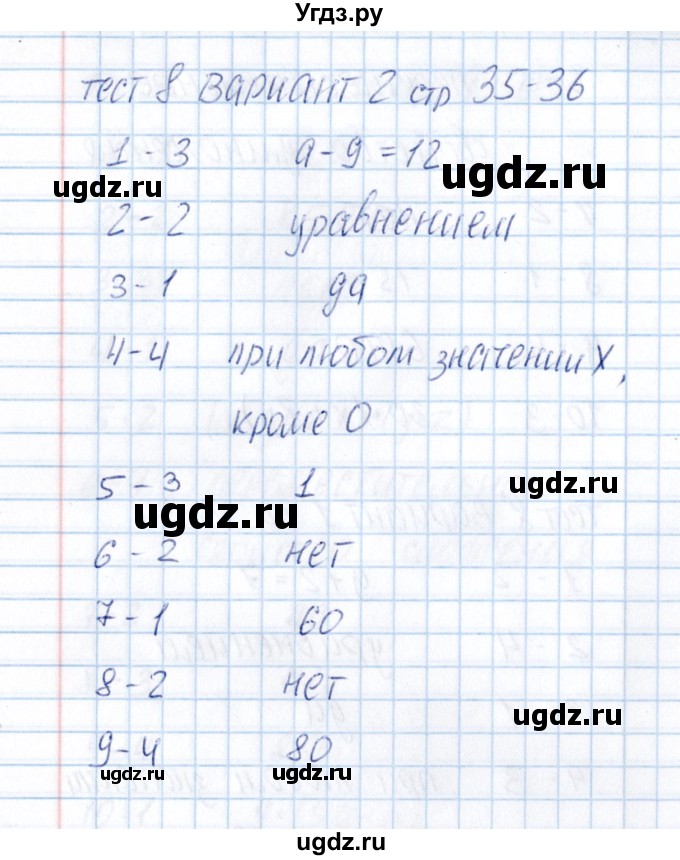 Угдз.ру
тест 8 вариант 2 стр 35-36
1 - 3 а - 9 = 12
ugdz.ru ugdz.ru
2 - 2 уравнением
3 - 1 да
4 - 4 при любом значении х,
кроме 0
5 - 3 1 ugdz.ru
ugdz.ru
6 - 2 нет
7 - 1 60
8 - 2 нет
ugdz.ru
9 - 4 80
ugdz.ru ugdz.ru
ugdz.ru